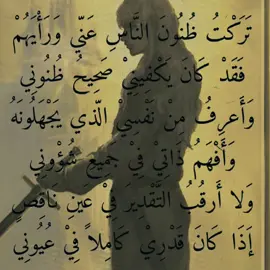 تَرَكْتُ ظُنُونَ النَّاسِ عَنِّي وَرَأْيَهُمْ
فَقَدْ كَانَ يَكْفِينِيْ صَحِيحُ ظُنُونِي
وَأَعرِفُ مِنْ نَفْسِيْ الَّذي يَجْهَلُونَهُ
وَأَفْهَمُ ذَاتِي فِيْ جَمِيعِ شُؤُونِي
وَلا أَرقُبُ التَّقْدِيرَ فِيْ عَينِ نَاقِصٍ
إِذَا كَانَ قَدْرِيْ كَامِلاً فِيْ عُيُونِي